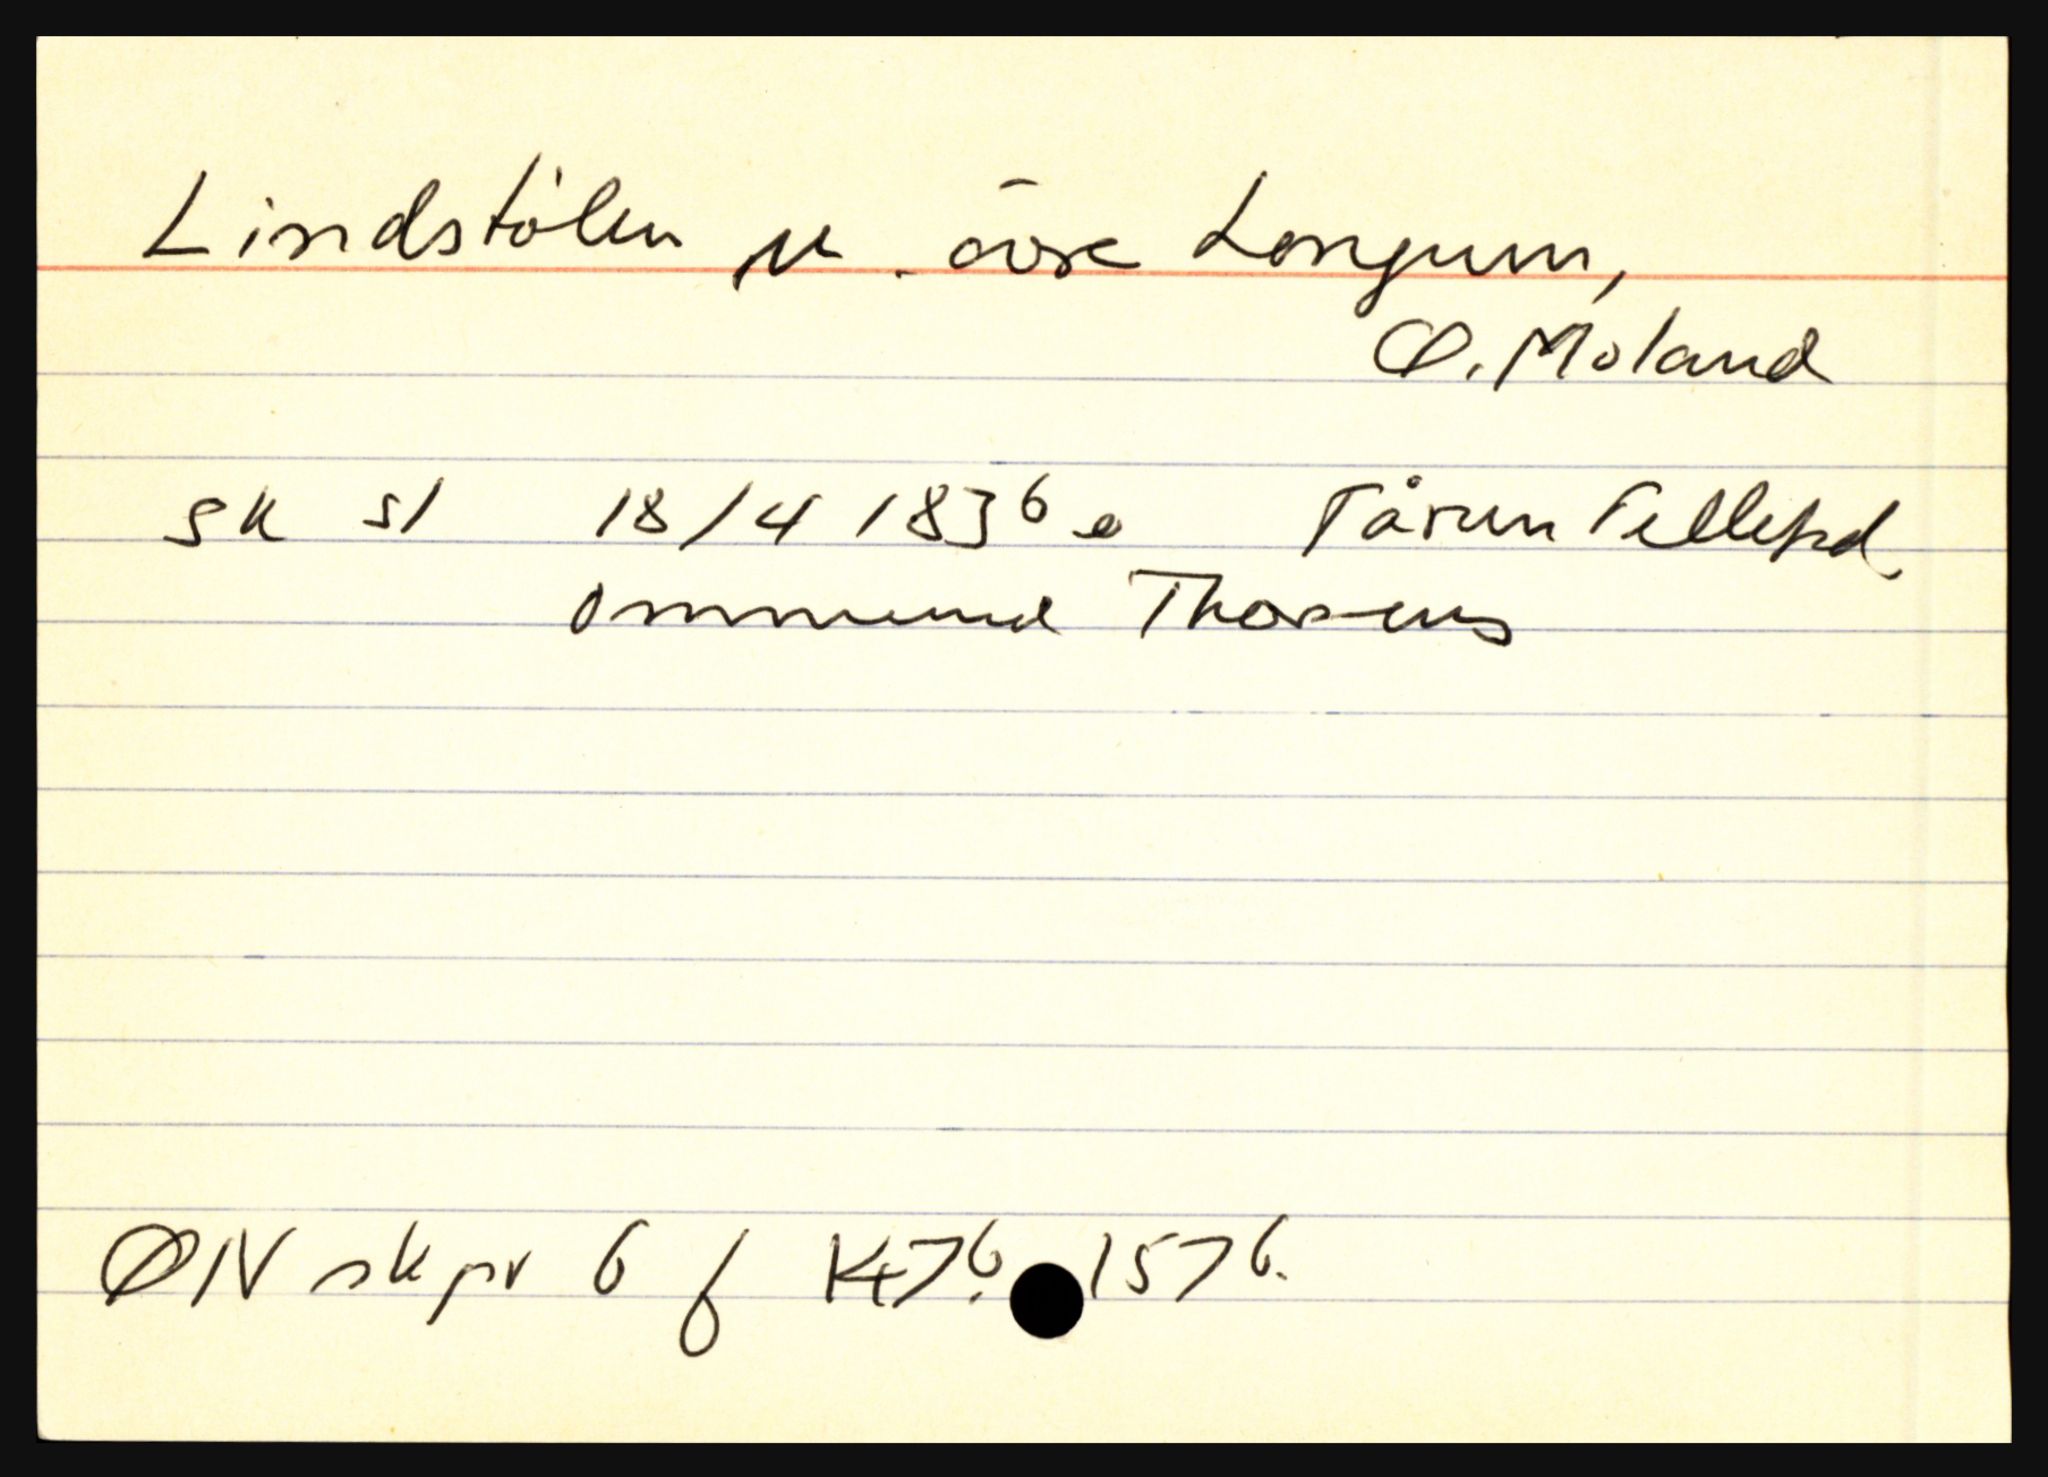 Lindstölen u. övre Longum,
Ø. Moland
sk sl 18/4 1836 e Tårun Tellefsd
Ommund Thorsens
ØN skpr 6 f K476. 1576.